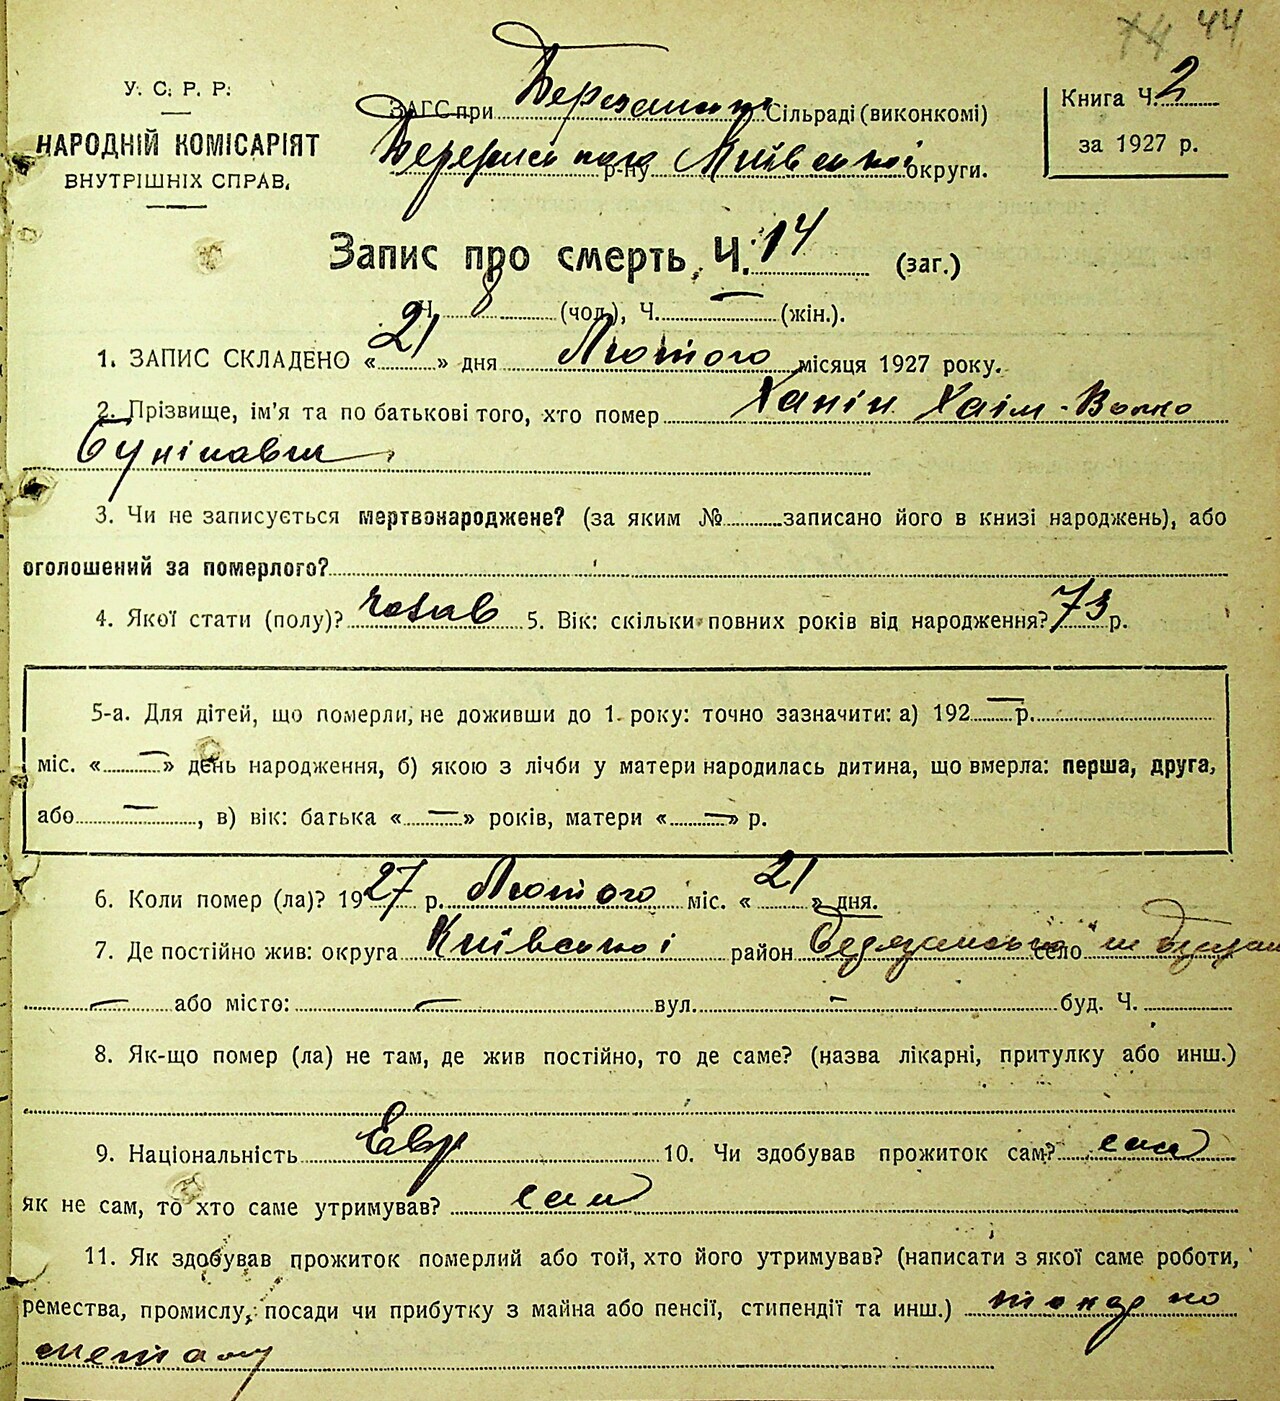 44
У. С. Р. Р.
НАРОДНІЙ КОМІСАРІЯТ
ВНУТРІШНІХ СПРАВ.
ЗАГС при Сільраді (виконкомі)
р-ну Київської округи.
Книга Ч. 2
за 1927 р.
Запис про смерть, Ч. 14 (заг.)
Ч. 8 (чол.), Ч. — (жін.).
1. ЗАПИС СКЛАДЕНО «21» дня Лютого місяця 1927 року.
2. Прізвище, ім'я та по батькові того, хто помер Ханін Хаім-Волко
3. Чи не записується мертвонароджене? (за яким № записано його в книзі народжень), або
оголошений за померлого?
4. Якої стати (полу)? 5. Вік: скільки повних років від народження? 73 р.
5-а. Для дітей, що померли, не доживши до 1 року: точно зазначити: а) 192 — р.
міс. « — » день народження, б) якою з лічби у матери народилась дитина, що вмерла: перша, друга,
або — , в) вік: батька « — » років, матери « — » р.
6. Коли помер (ла)? 1927 р. Лютого міс. «21» дня.
7. Де постійно жив: округа Київської район село
— або місто: — вул. — буд. Ч.
8. Як-що помер (ла) не там, де жив постійно, то де саме? (назва лікарні, притулку або инш.)
9. Національність Евр 10. Чи здобував прожиток сам? сам
як не сам, то хто саме утримував? сам
11. Як здобував прожиток померлий або той, хто його утримував? (написати з якої саме роботи,
ремества, промислу, посади чи прибутку з майна або пенсії, стипендії та инш.)